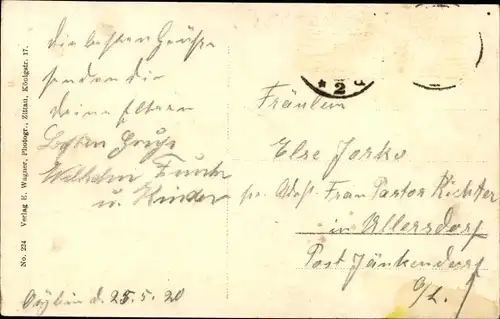 No. 224 Verlag E. Wagner, Photogr., Zittau, Königstr. 17.
Die besten Grüße
senden Dir
Deine Eltern
Besten Gruß
Wilhelm
u. Kinder
Oybin d. 25.5.20
* 2
Fräulein
Else Jorke
Frau Pastor Richter
in Ullersdorf
Post Jänkendorf
O/L.